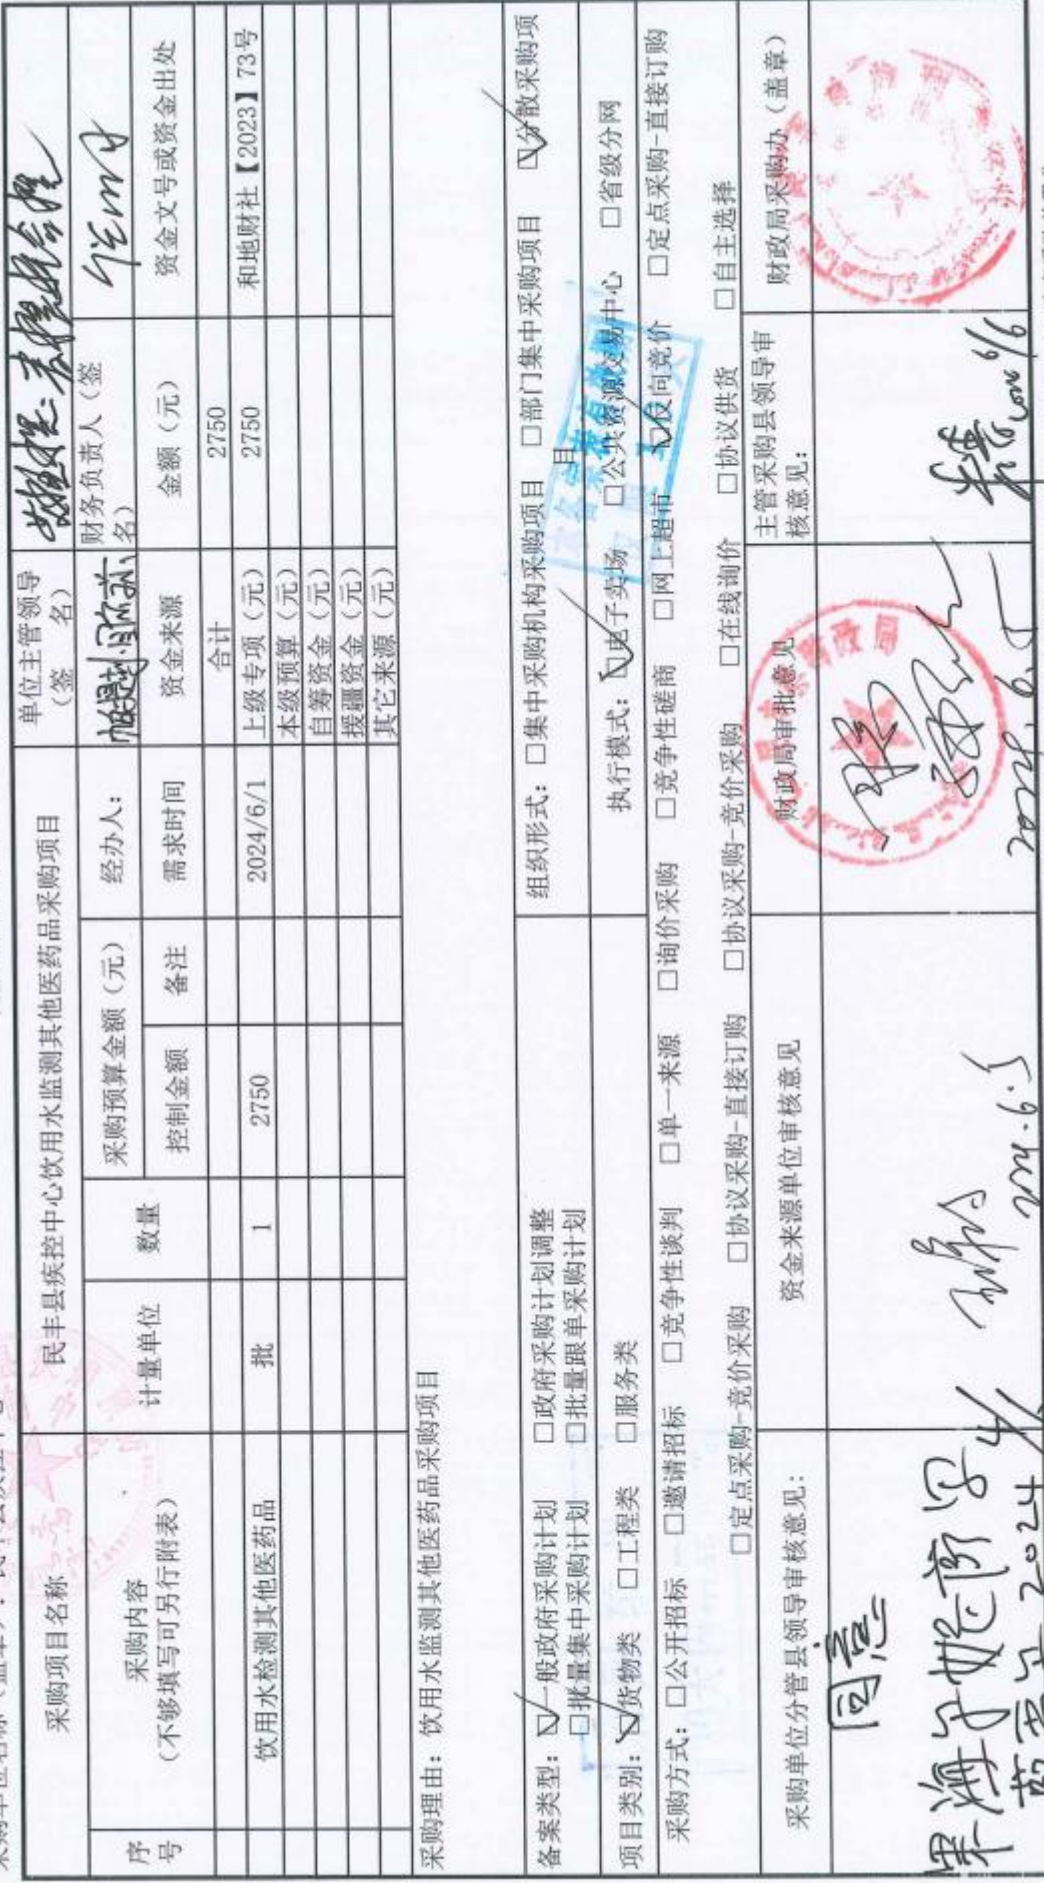 采购项目名称 民丰县疾控中心饮用水监测其他医药品采购项目 单位主管领导（签名）
序号 采购内容（不够填写可另行附表） 计量单位 数量 采购预算金额（元） 经办人： 财务负责人（签名）
控制金额 备注 需求时间 资金来源 金额（元） 资金文号或资金出处
合计 2750
饮用水检测其他医药品 批 1 2750 2024/6/1 上级专项（元） 2750 和地财社【2023】73号
本级预算（元）
自筹资金（元）
援疆资金（元）
其它来源（元）
采购理由：饮用水监测其他医药品采购项目
备案类型：☑一般政府采购计划 □政府采购计划调整
□批量集中采购计划 □批量跟单采购计划
组织形式：□集中采购机构采购项目 □部门集中采购项目 ☑分散采购项目
项目类别：☑货物类 □工程类 □服务类
执行模式：☑电子卖场 □公共资源交易中心 □省级分网
采购方式：□公开招标 □邀请招标 □竞争性谈判 □单一来源 □询价采购 □竞争性磋商 □网上超市 ☑反向竞价 □定点采购-直接订购
□定点采购-竞价采购 □协议采购-直接订购 □协议采购-竞价采购 □在线询价 □协议供货 □自主选择
采购单位分管县领导审核意见： 资金来源单位审核意见 财政局审批意见 主管采购县领导审核意见： 财政局采购办（盖章）
同意
2024